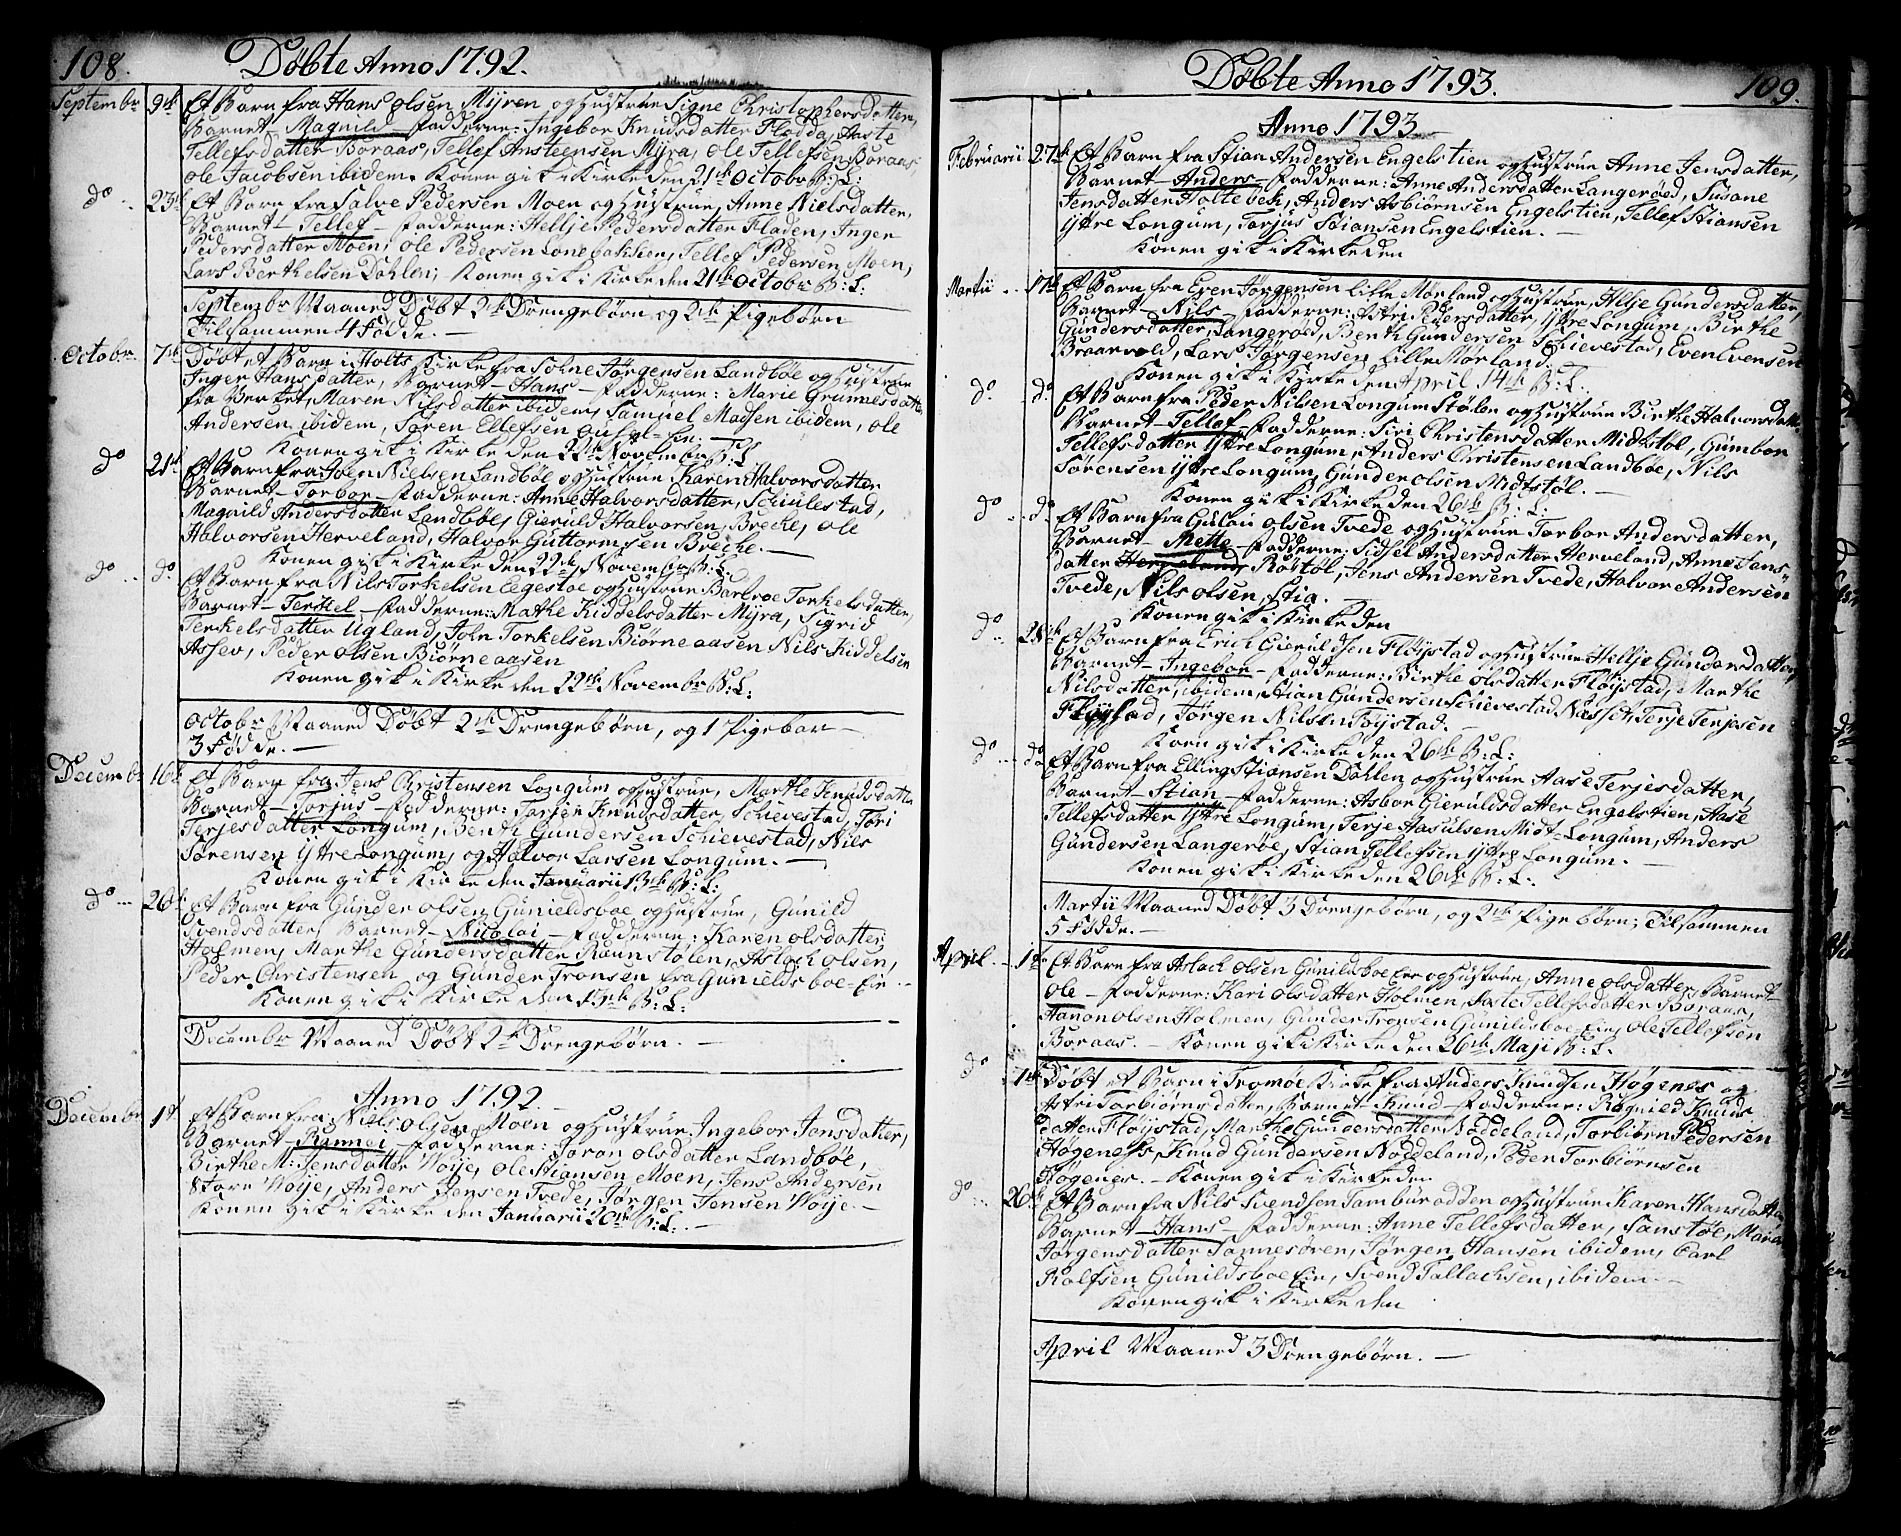 108.
Døbte Anno 1792.
Septembr 9de Et Barn fra Hans Olsen Myren og Hustrue Signe Christophersdatter,
Barnet – Magnild – Fadderne: Ingebor Knudsdatter Flodda, Aaste
Tellefsdatter Boraas, Tellef Ansteensen Myra, Ole Tellefsen Boraas,
Ole Jacobsen ibidem. Konen gik i Kirke den 21de Octobr B: L:
do 23de Et Barn fra Salve Pedersen Moen og Hustrue, Anne Nielsdatter,
Barnet – Tellef – Fadderne: Hellje Pedersdatter Fladen, Inger
Pedersdatter Moen, Ole Pedersen Lonebakken, Tellef Pedersen Moen,
Lars Berthelsen Dahlen; Konen gik i Kirke den 21de Octobr B: L:
Septembr Maaned Døbt 2de Drengebørn og 2de Pigebørn
Tilsammen 4 Fødde. –
Octobr 7de Døbt et Barn i Holts Kirke fra John Jørgensen Landbøe og Hustrue
Inger Hansdatter, Barnet – Hans – Fadderne: Marie Grumnesdatter
fra Berket, Maren Nilsdatter ibidem, Samuel Madsen ibidem, Ole
Andersen ibidem, Søren Ellefsen
Konen gik i Kirke den 22de Novembr B: L:
do 21de Et Barn fra John Nielsen Landbøe og Hustrue Karen Halvorsdatter
Barnet – Torbor – Fadderne: Anne Halvorsdatter, Schulestad,
Magnild Andersdatter Landbøe, Gieruld Halvorsen, Brecke, Ole
Halvorsen Herveland, Halvor Guttormsen Breche. –
Konen gik i Kirke den 22de Novembr B: L:
do do Et Barn fra Nils Torkelsen Eegeboe og Hustrue Barbroe Torkelsdatter,
Barnet – Terkel – Fadderne: Mathe Kiddelsdatter Myra, Sigrid
Terkelsdatter Ugland, John Torkelsen Biørneaasen Nils Kiddelsen
Assev, Peder Olsen Biørneaasen
Konen gik i Kirke den 22de Novembr B: L:
Octobr Maaned Døbt 2de Drengebørn, og 1 Pigebar –
3 Fødde. –
Decembr 16de Et Barn fra Jens Christensen Longum og Hustrue, Marthe Knudsdatter
Barnet – Torjus – Fadderne: Torjer Knudsdatter, Schievestad, Tøri
Terjesdatter Longum, Benth Gundersen Schievestad, Nils
Sørensen Ytre Longum, og Halvor Larsen Longum. –
Konen gik i Kirke den Januarii 13de B: L:
do 26de Et Barn fra Gunder Olsen Gunieldsboe og Hustrue, Gunild
Svendsdatter, Barnet – Nicolai – Fadderne: Karen Olsdatter
Holmen, Marthe Gundersdatter Rønnstølen, Aslach Olsen,
Peder Christensen og Gunder Tronsen fra Gunieldsboe-Eie.
Konen gik i Kirke den 13de B: L:
Decembr Maaned Døbt 2de Drengebørn. –
Anno 1792
Decembr 1te Et Barn fra Niels Olsen Moen og Hustrue Ingebor Jensdatter,
Barnet – Rannei – Fadderne: Joran Olsdatter Landbøe,
Birthe M: Jensdatter Woije, Ole Stiansen Moen, Jens Andersen
Store Woije, Anders Jensen Tvede, Jørgen Jensen Woije. –
Konen gik i Kirke den Januarii 20de B: L: –
Døbte Anno 1793.
109.
Anno 1793
Februarii 27de Et Barn fra Stian Andersen Engelstien og Hustrue Anne Jensdatter,
Barnet – Anders – Fadderne: Anne Andersdatter Langerøed, Susane
Jensdatter Holtebek, Anders Asbiørnsen Engelstien, Tellef Stiansen
Ytre Longum, Torjus Stiansen Engelstien. –
Konen gik i Kirke den
Martii 17de Et Barn fra Even Jørgensen Lille Mørland og Hustrue, Helje Gundersdatter,
Barnet – Nils – Fadderne: Astri Pedersdatter, Ytre Longum, Birthe
Gundersdatter, Langerød, Benth Gundersen Schievestad, Even Evensen
Braarvold, Lars Jørgensen Lille Mørland.
Konen gik i Kirke den April 14de B: L:
do do Et Barn fra Peder Nilsen Longum Stølen og Hustrue Birthe Halvorsdatter
Barnet – Tellef – Fadderne: Siri Christensdatter Midtstøl, Gumbor
Tellefsdatter Ytre Longum, Anders Christensen Landbøe, Nils
Sørensen Ytre Longum, Gunder Olsen Midtstøl. –
Konen gik i Kirke den 26de B: L:
do do Et Barn fra Guloui Olsen Tvede og Hustrue Torbor Andersdatter,
Barnet – Mette – Fadderne: Sidsel Andersdatter Herveland, Anne Jens-
datter Herveland, Røstøl, Jens Andersen Tvede, Halvor Andersen
Tvede, Nils Olsen, Stia.
Konen gik i Kirke den
do 25de Et Barn fra Erich Gieruldsen Fløistad og Hustrue Hellje Gundersdatter,
Barnet – Ingebor – Fadderne: Birthe Olsdatter Fløystad, Marthe
Nilsdatter, ibidem, Stian Gundersen Schievestad Næsset, Terje Terjesen
Fløystad, Jørgen Nilsen Føistad.
Konen gik i Kirke den 26de B: L:
do do Et Barn fra Elling Stiansen Dahlen og Hustrue Aase Terjesdatter,
Barnet – Stian – Fadderne: Asbor Gieruldsdatter Engelstien, Aase
Tellefsdatter Ytre Longum, Terje Aasulsen Midt-Longum, Anders
Gundersen Langerøe, Stian Tellefsen Ytre Longum. –
Konen gik i Kirke den 26de B: L:
Martii Maaned Døbt 3 Drengebørn, og 2de Pigebørn; Tilsammen
5 Fødde. –
April 1te Et Barn fra Aslach Olsen Gunildsboe Eie og Hustrue, Anne Olsdatter, Barnet
Ole – Fadderne: Kari Olsdatter Holmen, Aaste Tellefsdatter Boraas,
Aanon Olsen Holmen, Gunder Tronsen Gunildsboe Eie, Ole Tellefsen
Boraas. – Konen gik i Kirke den 26de Maji B: L:
do 1te Døbt et Barn i Tromøe Kirke fra Anders Knudsen Høgenes og
Astri Torbiørnsdatter, Barnet – Knud – Fadderne: Ragnild Knuds
datter Fløystad, Marthe Gundersdatter Noddeland, Torbiørn Pedersen
Høgenes, Knud Gundersen Noddeland, Peder Torbiørnsen
Høgenes. – Konen gik i Kirke den
do 26de Et Barn fra Nils Svendsen Tamburodden og Hustrue Karen Hansdatter
Barnet – Hans – Fadderne: Anne Tellefsdatter, Sanstøl, Maren
Jørgensdatter Sannesøren, Jørgen Hansen ibidem, Carl
Rolfsen Gunildsboe Eie, Svend Tallachsen, ibidem. –
Konen gik i Kirke den
April Maaned 3 Drengebørn. –